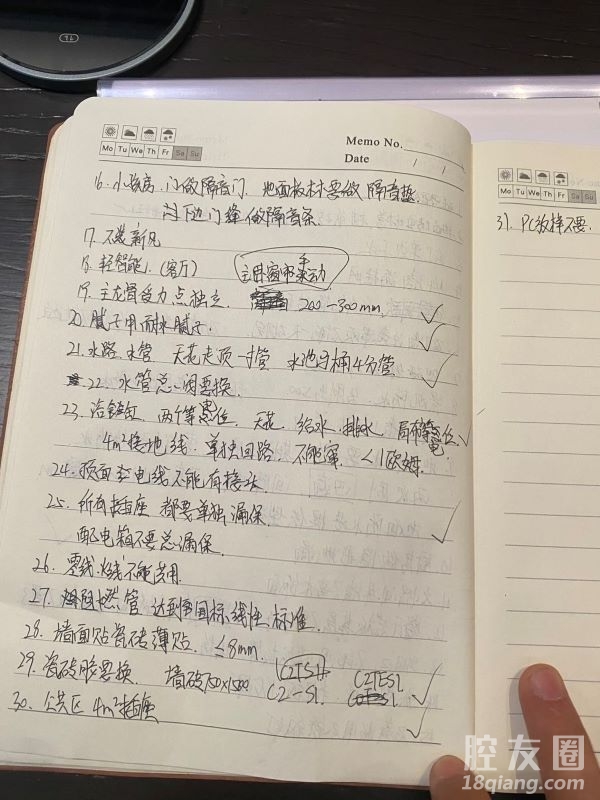 Mo Tu We Th Fr Sa Su
Memo No.
Date / /
16. 小孩房, 门做隔音门 地面板材要做隔音垫
门下边门缝做隔音条.
17. 不装新风
18. 轻智能. (客厅) 主卧窗帘手动
19. 主龙骨受力点独立. 200-300mm
20. 腻子用耐水腻子.
21. 水路. 水管 天花走顶一寸管 水池马桶4分管
22. 水管总闸要换.
23. 浴镜缸. 两个等电位. 天花 给水. 排水. 局部等电位
4m²接地线. 单独回路. 不能穿. <1欧姆.
24. 顶面套电线不能有接头
25. 所有插座 都要单独漏保
配电箱不要总漏保.
26. 零线火线不能共用.
27. 阻燃管 达到国标线性标准.
28. 墙面贴瓷砖薄贴. ≤8mm.
29. 瓷砖胶要换. 墙砖750x1500 C2TES1 C2TES1.
C2-S1.
30. 公共区 4m²插座
Mo Tu We Th Fr Sa Su
31. PC放样不要.
腔友圈
18qiang.com